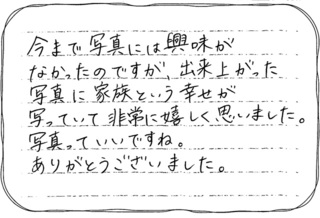 今まで写真には興味が
なかったのですが、出来上がった
写真に家族という幸せが
写っていて非常に嬉しく思いました。
写真っていいですね。
ありがとうございました。